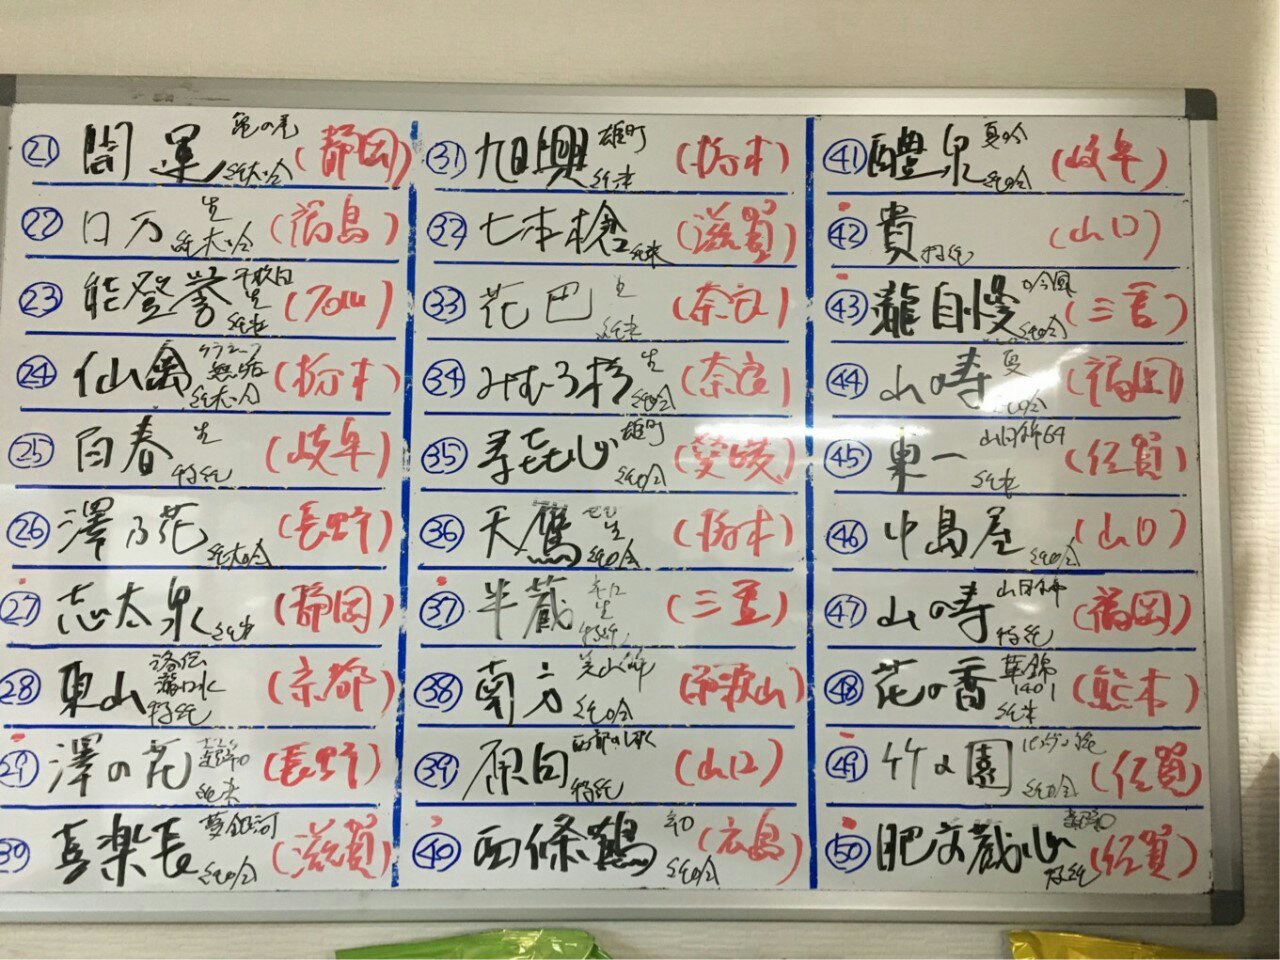 ㉑ 開運 亀の尾 純大吟 (静岡)
㉒ 日万 生 純大吟 (福島)
㉓ 能登誉 千枚田 生 純米 (石川)
㉔ 仙禽 無垢 純大吟 (栃木)
㉕ 百春 生 特純 (岐阜)
㉖ 澤乃花 純大吟 (長野)
㉗ 志太泉 純米 (静岡)
㉘ 東山 瀧口水 特純 (京都)
㉙ 澤の花 純米 (長野)
㉚ 喜楽長 夢銀河 純吟 (滋賀)
㉛ 旭興 雄町 純米 (栃木)
㉜ 七本槍 純米 (滋賀)
㉝ 花巴 生 純米 (奈良)
㉞ みむろ杉 生 純吟 (奈良)
㉟ 寿喜心 雄町 純吟 (愛媛)
㊱ 天鷹 生 純吟 (栃木)
㊲ 半蔵 生 特純 (三重)
㊳ 南方 美山錦 純吟 (和歌山)
㊴ 原白 西都の雫 特純 (山口)
㊵ 西條鶴 純吟 (広島)
㊶ 醴泉 夏吟 純吟 (岐阜)
㊷ 貴 特純 (山口)
㊸ 瀧自慢 純吟 (三重)
㊹ 山の寿 夏 純吟 (福岡)
㊺ 東一 山田錦64 純米 (佐賀)
㊻ 中島屋 純吟 (山口)
㊼ 山の寿 山田錦 特純 (福岡)
㊽ 花の香 華錦 1401 純米 (熊本)
㊾ 竹の園 純吟 (佐賀)
㊿ 肥前蔵心 特純 (佐賀)